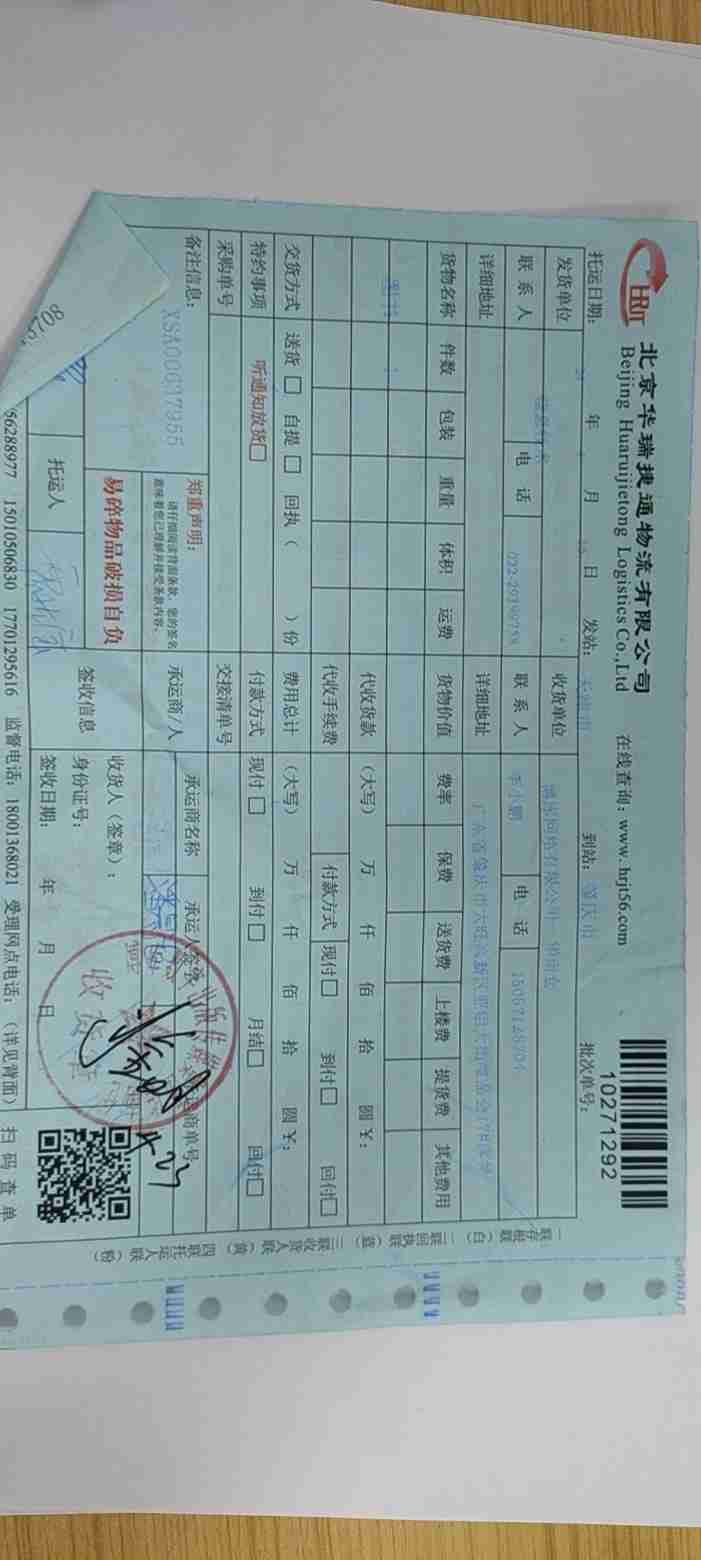 HRJT 北京华瑞捷通物流有限公司
Beijing Huaruijietong Logistics Co.,Ltd
在线查询：www.hrjt56.com
10271292
托运日期： 年 月 日 发站： 到站： 肇庆市 批次单号：
发货单位 收货单位
联系人 电话 022-29399758 联系人 李小鹏 电话
详细地址 详细地址
货物名称 件数 包装 重量 体积 运费 货物价值 费率 保费 送货费 上楼费 提货费 其他费用
图书
代收货款 （大写） 万 仟 佰 拾 圆 ￥：
代收手续费 付款方式 现付□ 到付□ 回付□
交货方式 送货□ 自提□ 回执（ ）份 费用总计 （大写） 万 仟 佰 拾 圆 ￥：
特约事项 听通知放货□ 付款方式 现付□ 到付□ 月结□ 回付□
采购单号 交接清单号
备注信息： XSA00637955
郑重声明：
请仔细阅读背面条款，您的签名
意味着您已理解并接受条款内容。
易碎物品破损自负
承运商/人 承运商名称 承运人签名 商单号
托运人
签收信息 收货人（签章）：
身份证号：
签收日期： 年 月 日
收货
4.23
3708
56288977 15010506830 17701295616 监督电话：18001368021 受理网点电话：（详见背面）
扫码查单
一联存根联（白） 二联回执联（蓝） 三联收货人联（黄） 四联托运人联（粉）